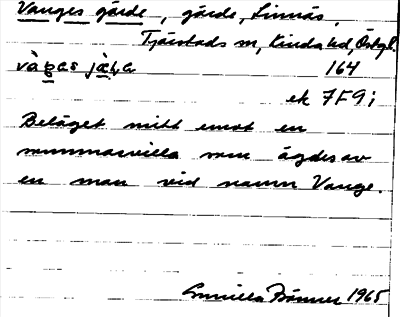 Vanges gärde, gärde, Linnäs,
Tjärstads sn, Kinda hd, Östgl.
164
ek 7F9i
Beläget mitt emot en
sommarvilla som ägdes av
en man vid namn Vange.
Gunilla 1965